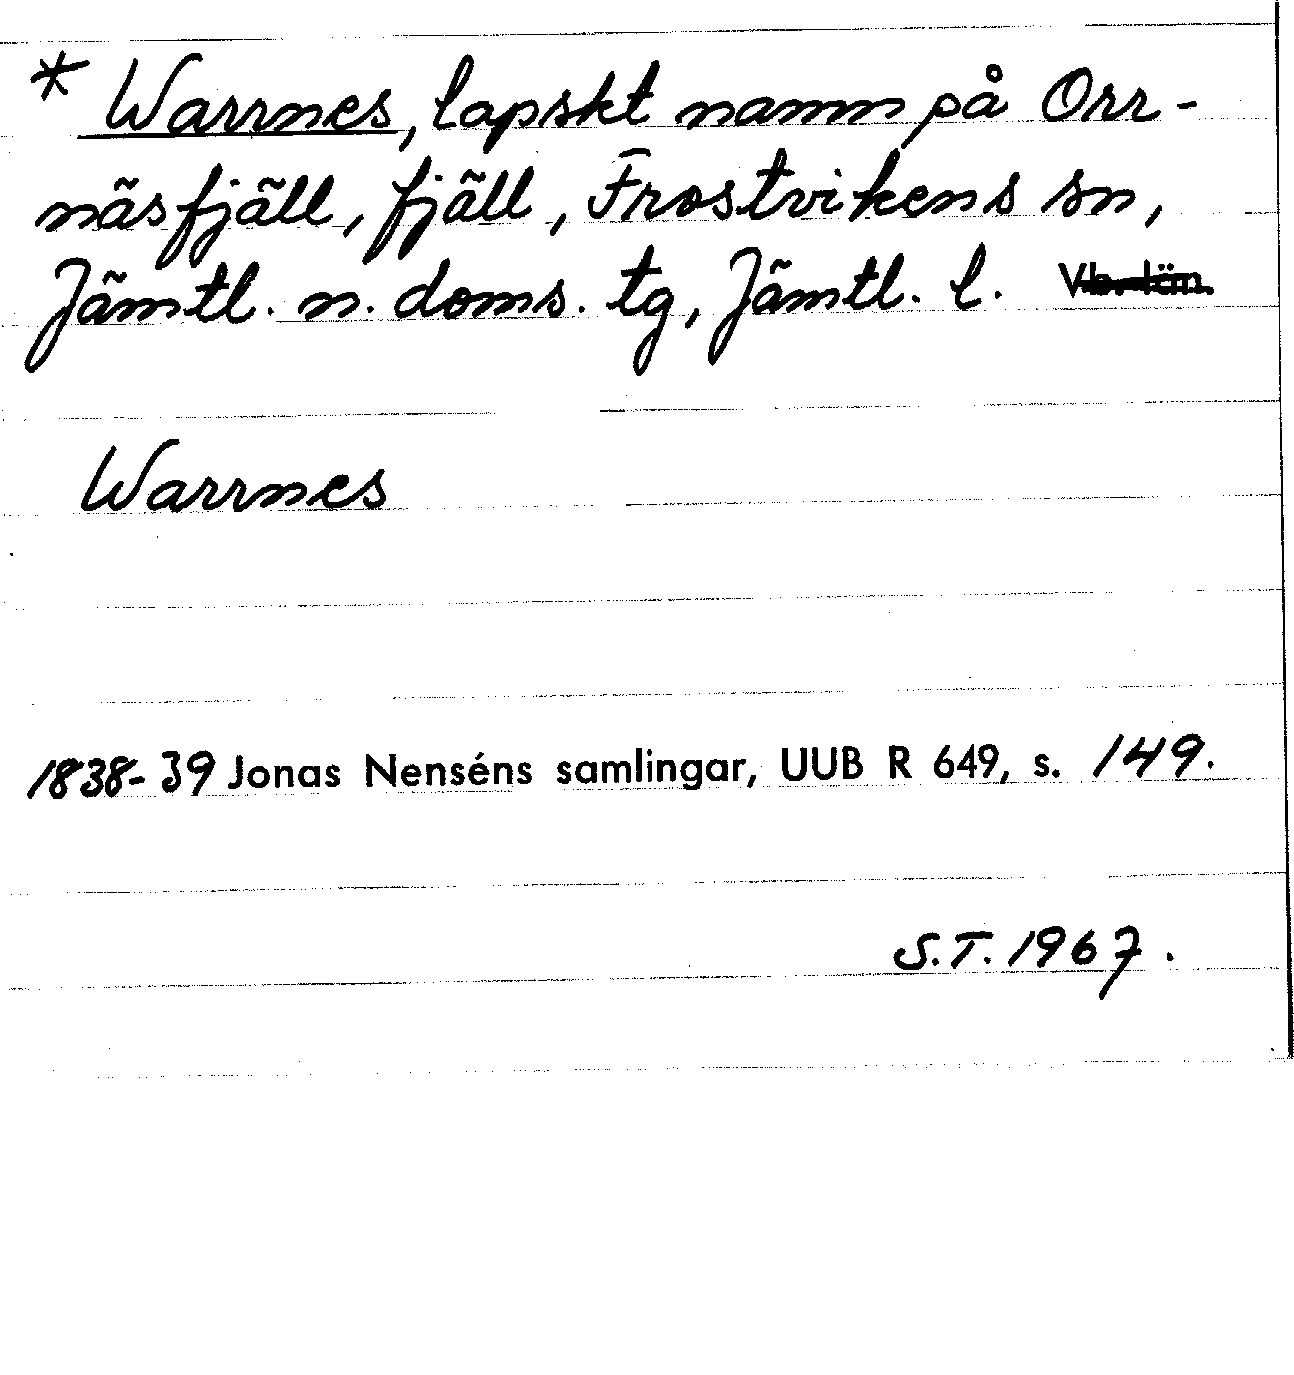 * Warrnes, lapskt namn på Orr-
näsfjäll, fjäll, Frostvikens sn,
Jämtl. n. doms. tg, Jämtl. l.
Warrnes
1838-39 Jonas Nenséns samlingar, UUB R 649, s. 149.
S.T. 1967.